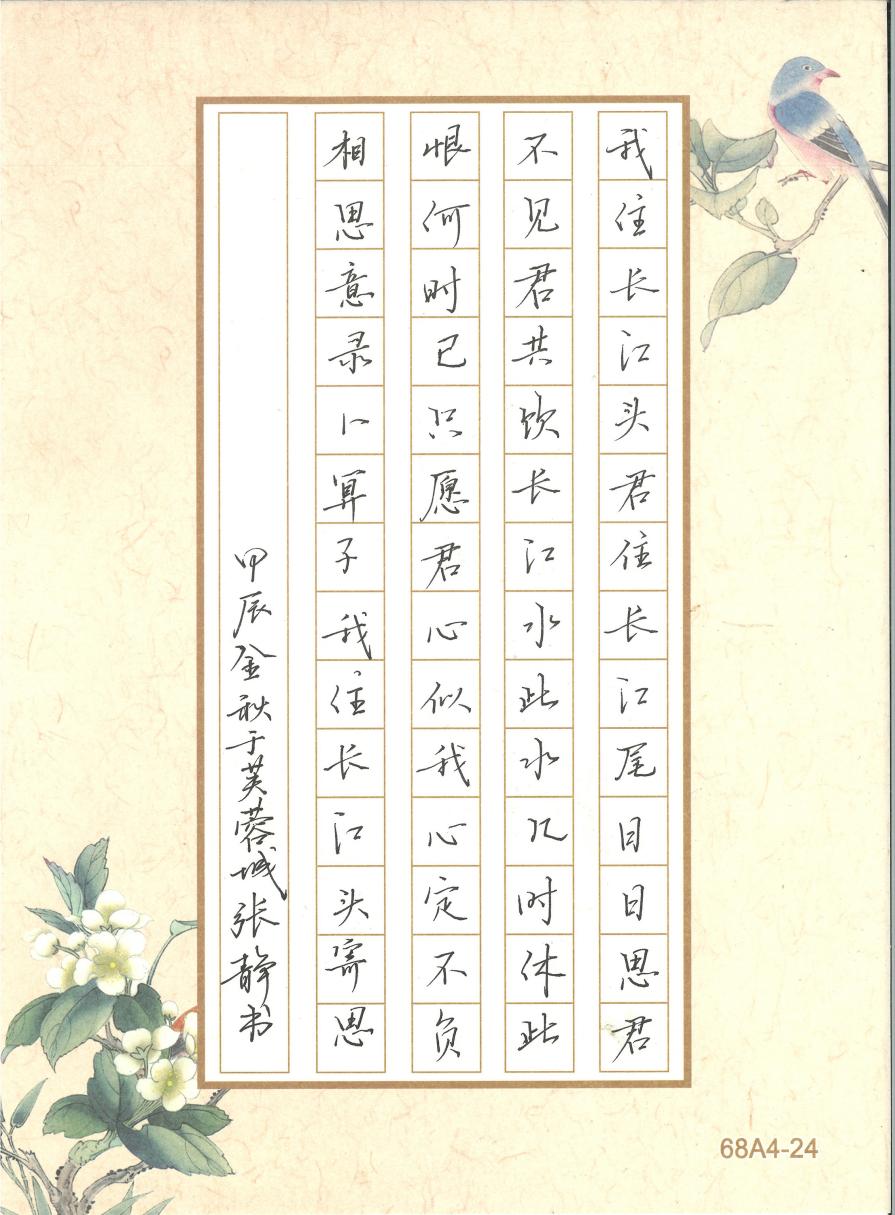 我住长江头君住长江尾日日思君
不见君共饮长江水此水几时休此
恨何时已只愿君心似我心定不负
相思意录卜算子我住长江头寄思
甲辰金秋于芙蓉城张静书
68A4-24